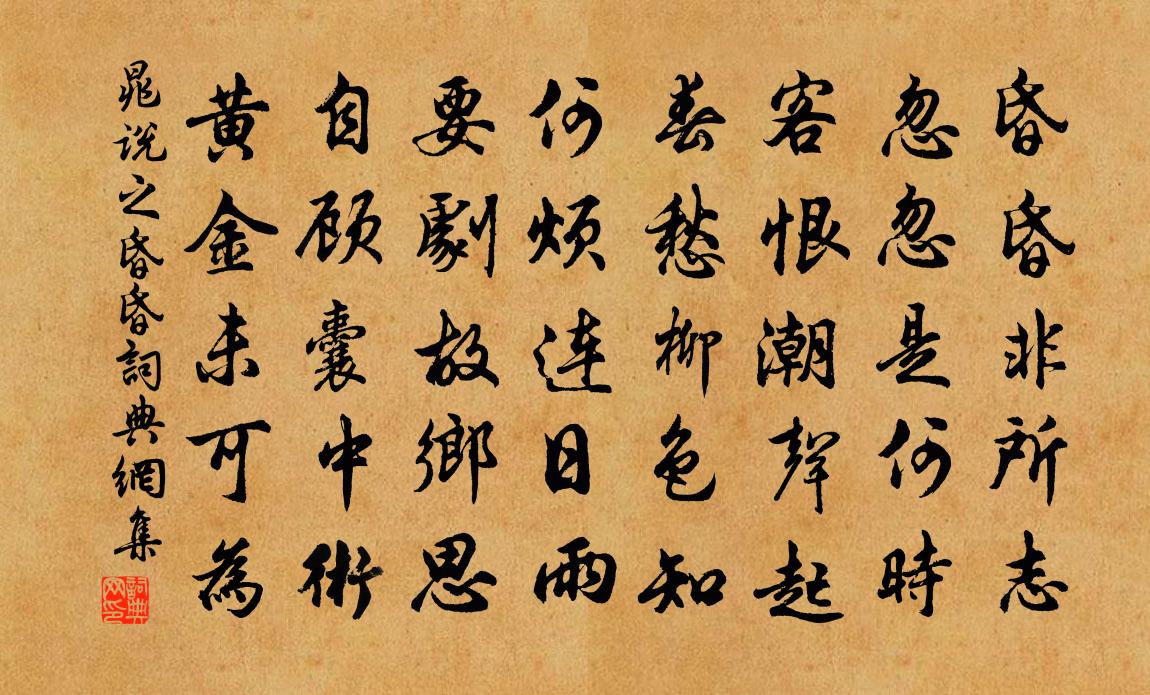 昏昏非所志
忽忽是何時
客恨潮聲起
春愁柳色知
何煩連日雨
要劇故鄉思
自顧囊中術
黃金未可為
晁說之昏昏詞典網集
詞典網印